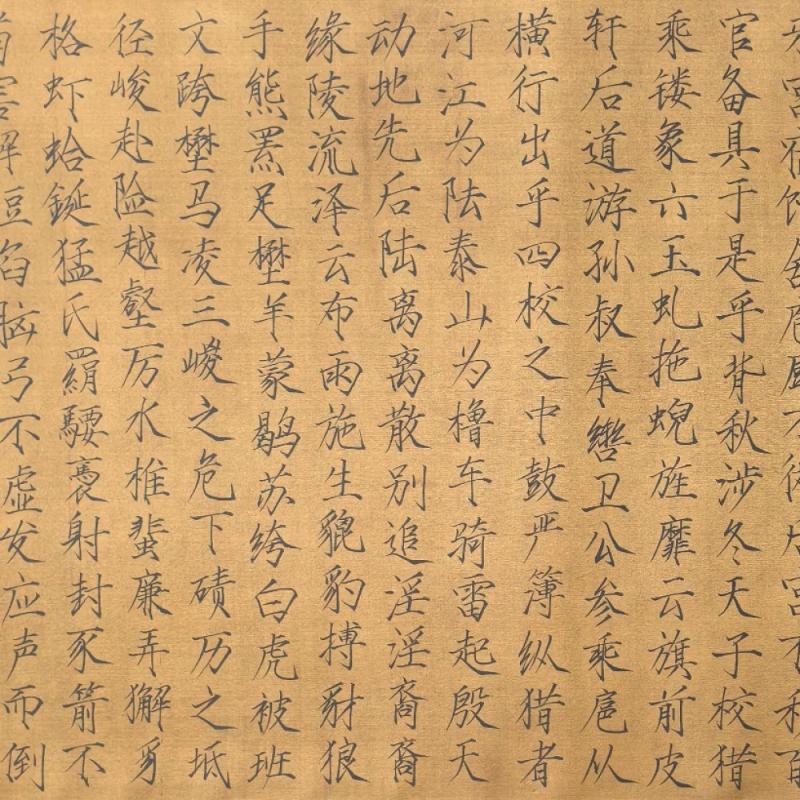 宫宿馆舍庖厨不徙后宫不移百
官备具于是乎背秋涉冬天子校猎
乘镂象六玉虬拖蜺旌靡云旗前皮
轩后道游孙叔奉辔卫公参乘扈从
横行出乎四校之中鼓严簿纵猎者
河江为阹泰山为橹车骑雷起殷天
动地先后陆离离散别追淫淫裔裔
缘陵流泽云布雨施生貔豹搏豺狼
手熊罴足壄羊蒙鹖苏绔白虎被班
文跨壄马凌三嵕之危下碛历之坻
径峻赴险越壑厉水椎蜚廉弄獬豸
格虾蛤鋋猛氏羂騕褭射封豕箭不
苟害解脰陷脑弓不虚发应声而倒